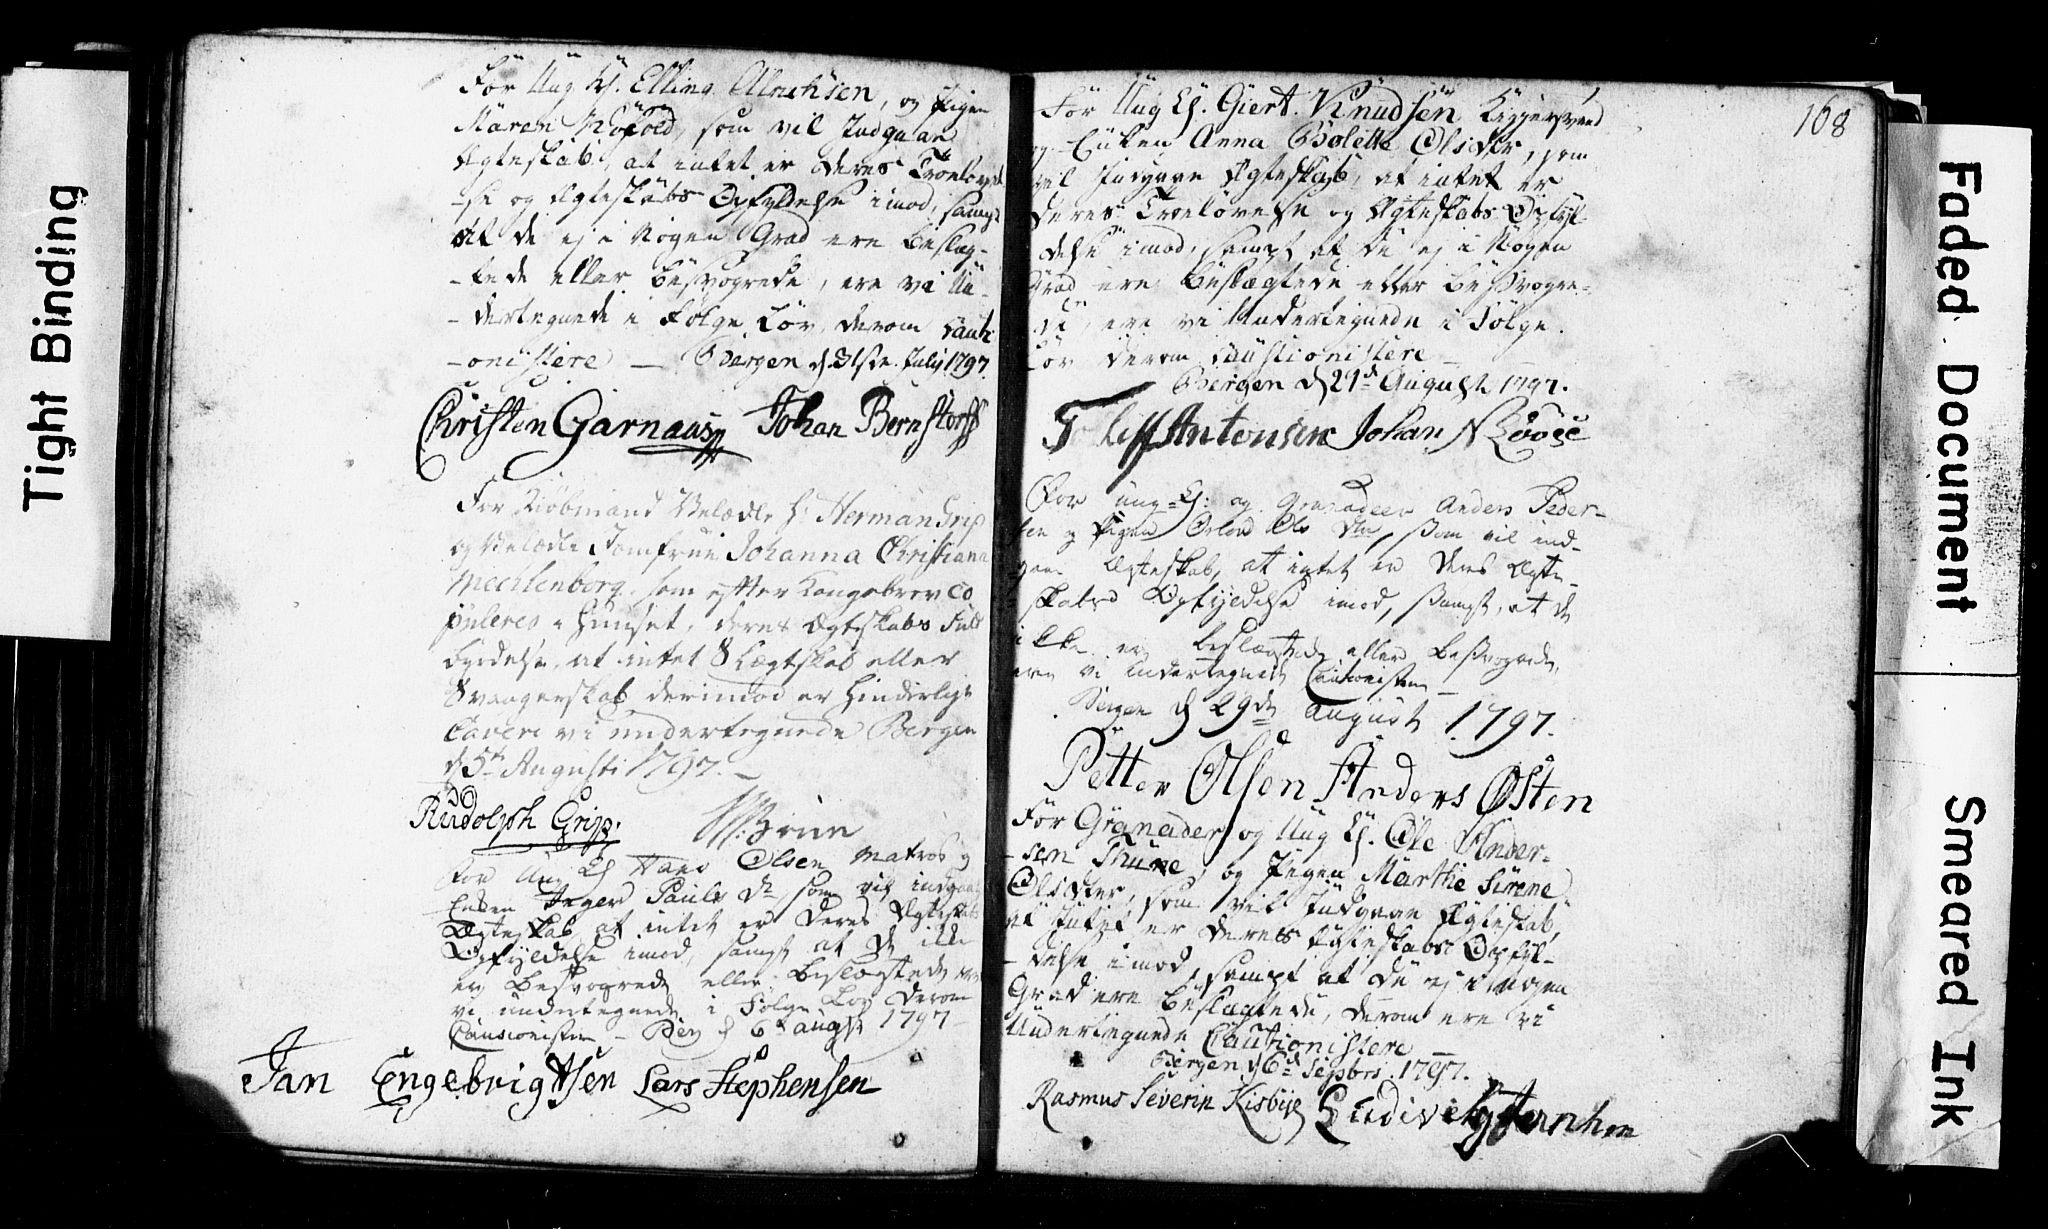 Tight Binding
För Ung K. Elling Ulrichsen, og Pigen
Maren, som vil Indgaae
Ægteskab, at intet er Deres Troelovel
-se og Ægteskabs Opfyldelse imod, sampt
at de ej i Nogen Grad ere Beslæg-
-tede eller besvogrede, ere vi Un-
-dertegnede i Følge Lov derom Cauti
-onistere — Bergen d 31te July 1797.
Christen Garnaas Johan Bernstorff
For Kiøbmand Velædle Hr Herman Grip
og Velædle Jomfrue Johanna Christiana
Mechlenborg som efter Kongebrev co
puleres i Huuset, deres Ægteskabs Fuld
byrdelse, at intet Slægtskab eller
Svogerskab derimod er Hinderligt
Cavere vi undertegnede Bergen
d 5te Augusti 1797. —
Rudolph Grip.
For Ung K Hans Olsen Matros og
Enken Inger Pauls Dr, som vil indgaae
Ægteskab, at intet er Deres Ægteskabs
Opfyldelse imod, sampt at De ikke
er Besvogrede eller Beslægtede ere
vi undertegnede i Følge Lov Derom
Cautionister — Ber d 6te augst 1797 —
Jan Engebrigtsen Lars Stephensen
168
För Ung K. Giert Knudsen
og Enken Anna Bolette Olsdtr, som
vil Indgaae Ægteskab, at intet er
Deres Troelovelse og Ægteskabs Opfyl-
delse imod, sampt at de ej i Nogen
Grad ere Beslægtede eller Besvogre-
de, ere vi Undertegnede i Følge
Lov derom Caustionistere —
Bergen d 21de August 1797.
Antonsen Johan N Loose
For ung K: og Granadeer Anders Peder-
sen og Pigen Ols Dtr, som vil ind-
gaae Ægteskab, at intet er Deres Ægte-
skabs Opfyldelse imod, sampt, at de
ikke er beslægtede eller Besvogrede,
ere vi Undertegnede Cautionister —
Bergen d 29de august 1797.
Petter Olsen Anders Østen
För Granader og Ung K. Ole Ander-
-sen Thune, og Pigen Marthe Sirene
Olsdter, som vil Indgaae Ægteskab,
at Intet er Deres Ægteskabs Opfyl-
-delse imod, sampt at de ej i Nogen
Grad ere Beslægtede, derom ere vi
Undertegnede Cautionistere —
Bergen d 6te Septbr. 1797.
Rasmus Severin Kisbye
Faded Document
Smeared Ink